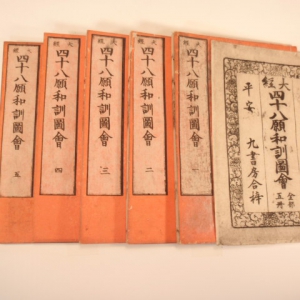 大經
四十八願和訓圖會
全部五冊
平安
九書房合梓
大經
四十八願和訓圖會 一
大經
四十八願和訓圖會 二
大經
四十八願和訓圖會 三
大經
四十八願和訓圖會 四
大經
四十八願和訓圖會 五